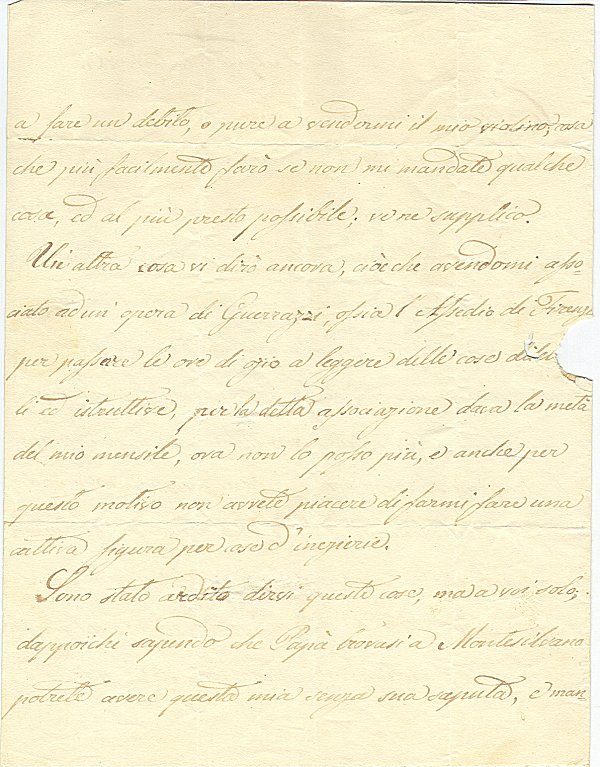 a fare un debito, o pure a vendermi il mio violino, cosa
che più facilmente farò se non mi mandate qualche
cosa, ed al più presto possibile; ve ne supplico.
Un' altra cosa vi dirò ancora, cioè che avendomi asso=
ciato ad un' opera di Guerrazzi, ossia l'Assedio di Firenze
per passare le ore di ozio a leggere delle cose
li ed istruttive, per la detta associazione dava la metà
del mio mensile, ora non lo posso più, e anche per
questo motivo non avrete piacere di farmi fare una
cattiva figura per
Sono stato ardito dirvi queste cose, ma a voi solo;
dappoichi sapendo che Papà trovasi a Montesilvano
potrete avere questa mia senza sua saputa, e man=